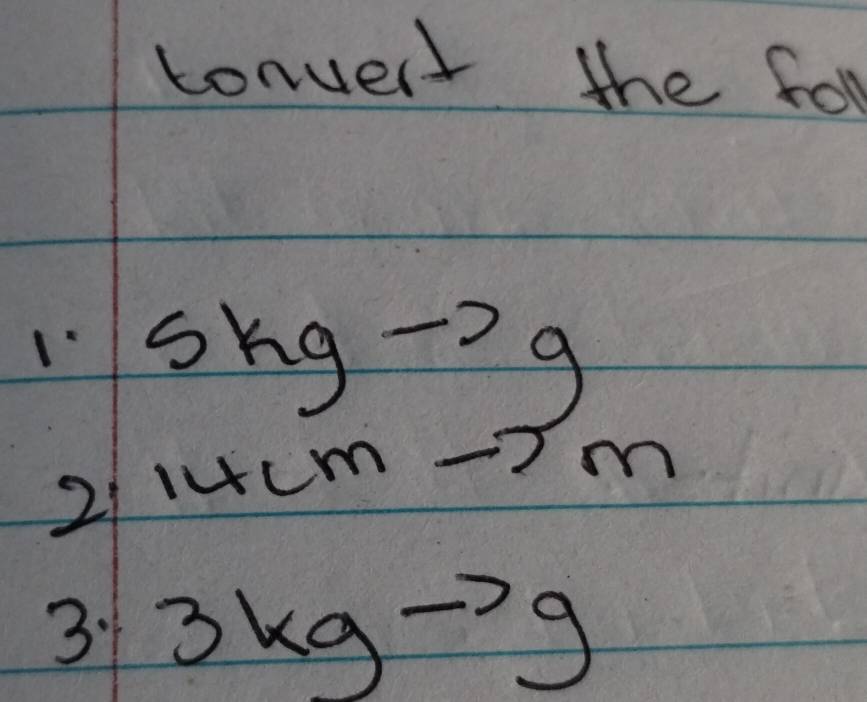 convert the foll
1. 5kg → g
2. 14cm → m
3. 3kg → g